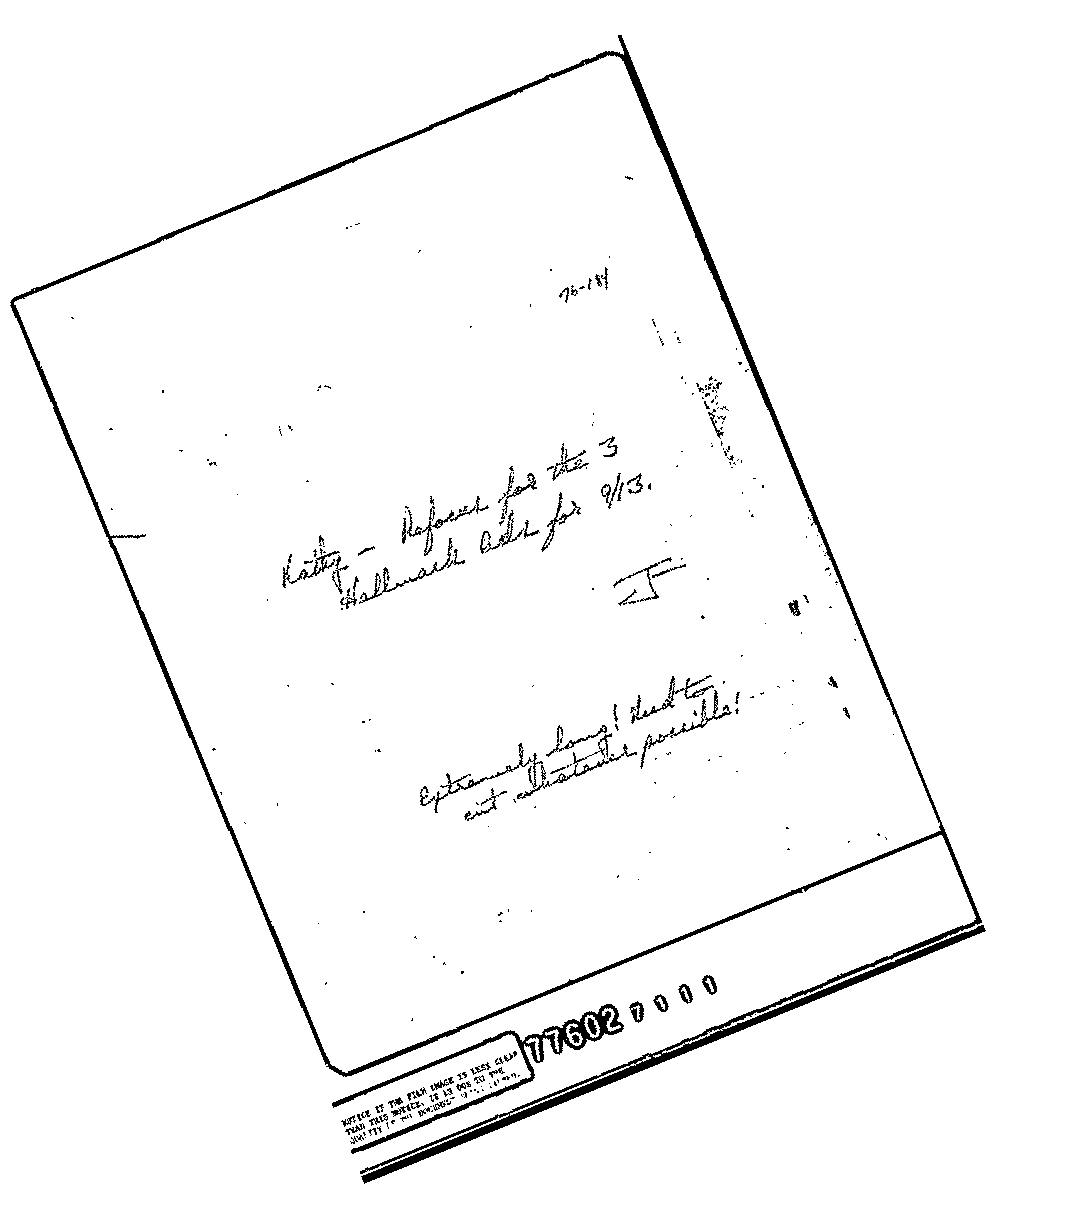 76-184
Kathy - Refocus for the 3
Hallmark Ads for 9/13.
J
Extremely long! Need to
cut whatever possible!
77602 7000
NOTICE IF THE FILM IMAGE IS LESS CLEAR
THAN THIS NOTICE, IT IS DUE TO THE
QUALITY OF THE DOCUMENT